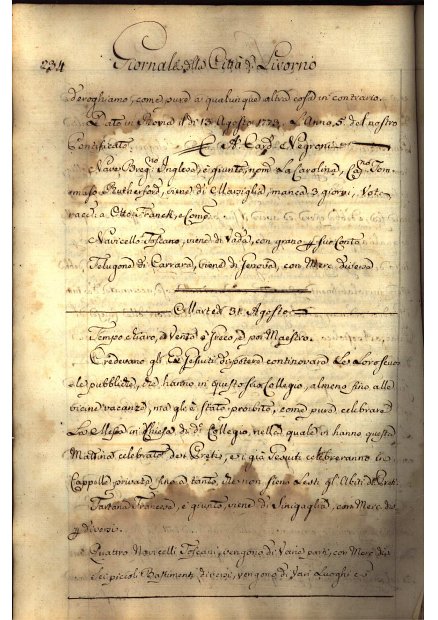 234 Giornale della Città di Livorno
deroghiamo, come pure a qualunque altra cosa in contrario.
Dato in Roma il dì 13 Agosto 1773. L'Anno 5.° del nostro
Pontificato. A. Card. Negroni
Nave Inglese, è giunto, nom. La Carolina, Cap.no Tom-
maso Rutherford, viene di Marsiglia, manca 3 giorni,
a Otto Franck, e Comp.
Navicello Toscano, viene di Vada, con grano p suo Conto
di Carrara, viene di Genova, con Merc. diverse
Martedì 31. Agosto
Tempo chiaro, e Vento Greco, e poi Maestro.
Credevano gli Ex Gesuiti di potere continovare le loro scuo-
le pubbliche, che hanno in questo suo Collegio, almeno fino alle
vicine vacanze, ma gli è stato proibito, come pure celebrare
La Messa in Chiesa di d.° Collegio, nella quale vi hanno questa
Mattina celebrato de Pretis, e i già Gesuiti celebreranno in
Cappella privata fino a tanto, che non sieno lesti gl'Abiti da Preti.
Tartana Francese, è giunta, viene di Sinigaglia, con Merc.
p diversi.
Quattro Navicelli Toscani, vengono di Varie parti, con Merc.
Sei piccoli Bastimenti diversi, vengono di Vari Luoghi e